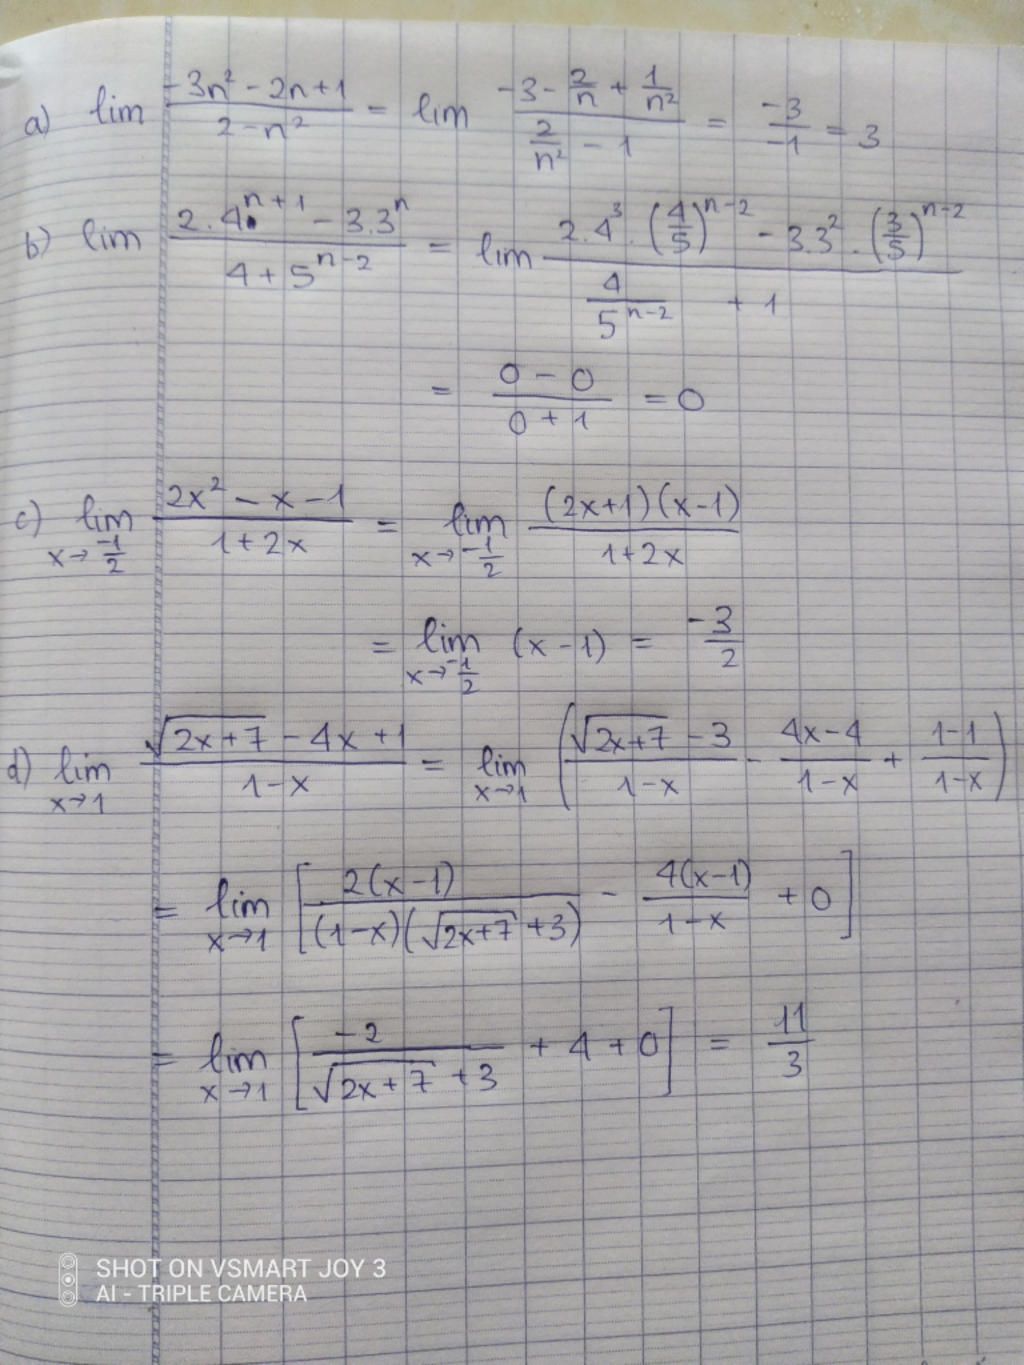 a) lim (-3n² - 2n + 1)/(2 - n²) = lim (-3 - 2/n + 1/n²)/(2/n² - 1) = -3/-1 = 3
b) lim (2.4^(n+1) - 3.3^n)/(4 + 5^(n-2)) = lim (2.4³.(4/5)^(n-2) - 3.3².(3/5)^(n-2))/(4/5^(n-2) + 1)
= (0 - 0)/(0 + 1) = 0
c) lim x→-1/2 (2x² - x - 1)/(1 + 2x) = lim x→-1/2 ((2x+1)(x-1))/(1 + 2x)
= lim x→-1/2 (x - 1) = -3/2
d) lim x→1 (√(2x+7) - 4x + 1)/(1 - x) = lim x→1 ((√(2x+7) - 3)/(1 - x) - (4x - 4)/(1 - x) + (1 - 1)/(1 - x))
= lim x→1 [2(x-1)/((1-x)(√(2x+7) + 3)) - 4(x-1)/(1-x) + 0]
= lim x→1 [-2/(√(2x+7) + 3) + 4 + 0] = 11/3
SHOT ON VSMART JOY 3
AI - TRIPLE CAMERA